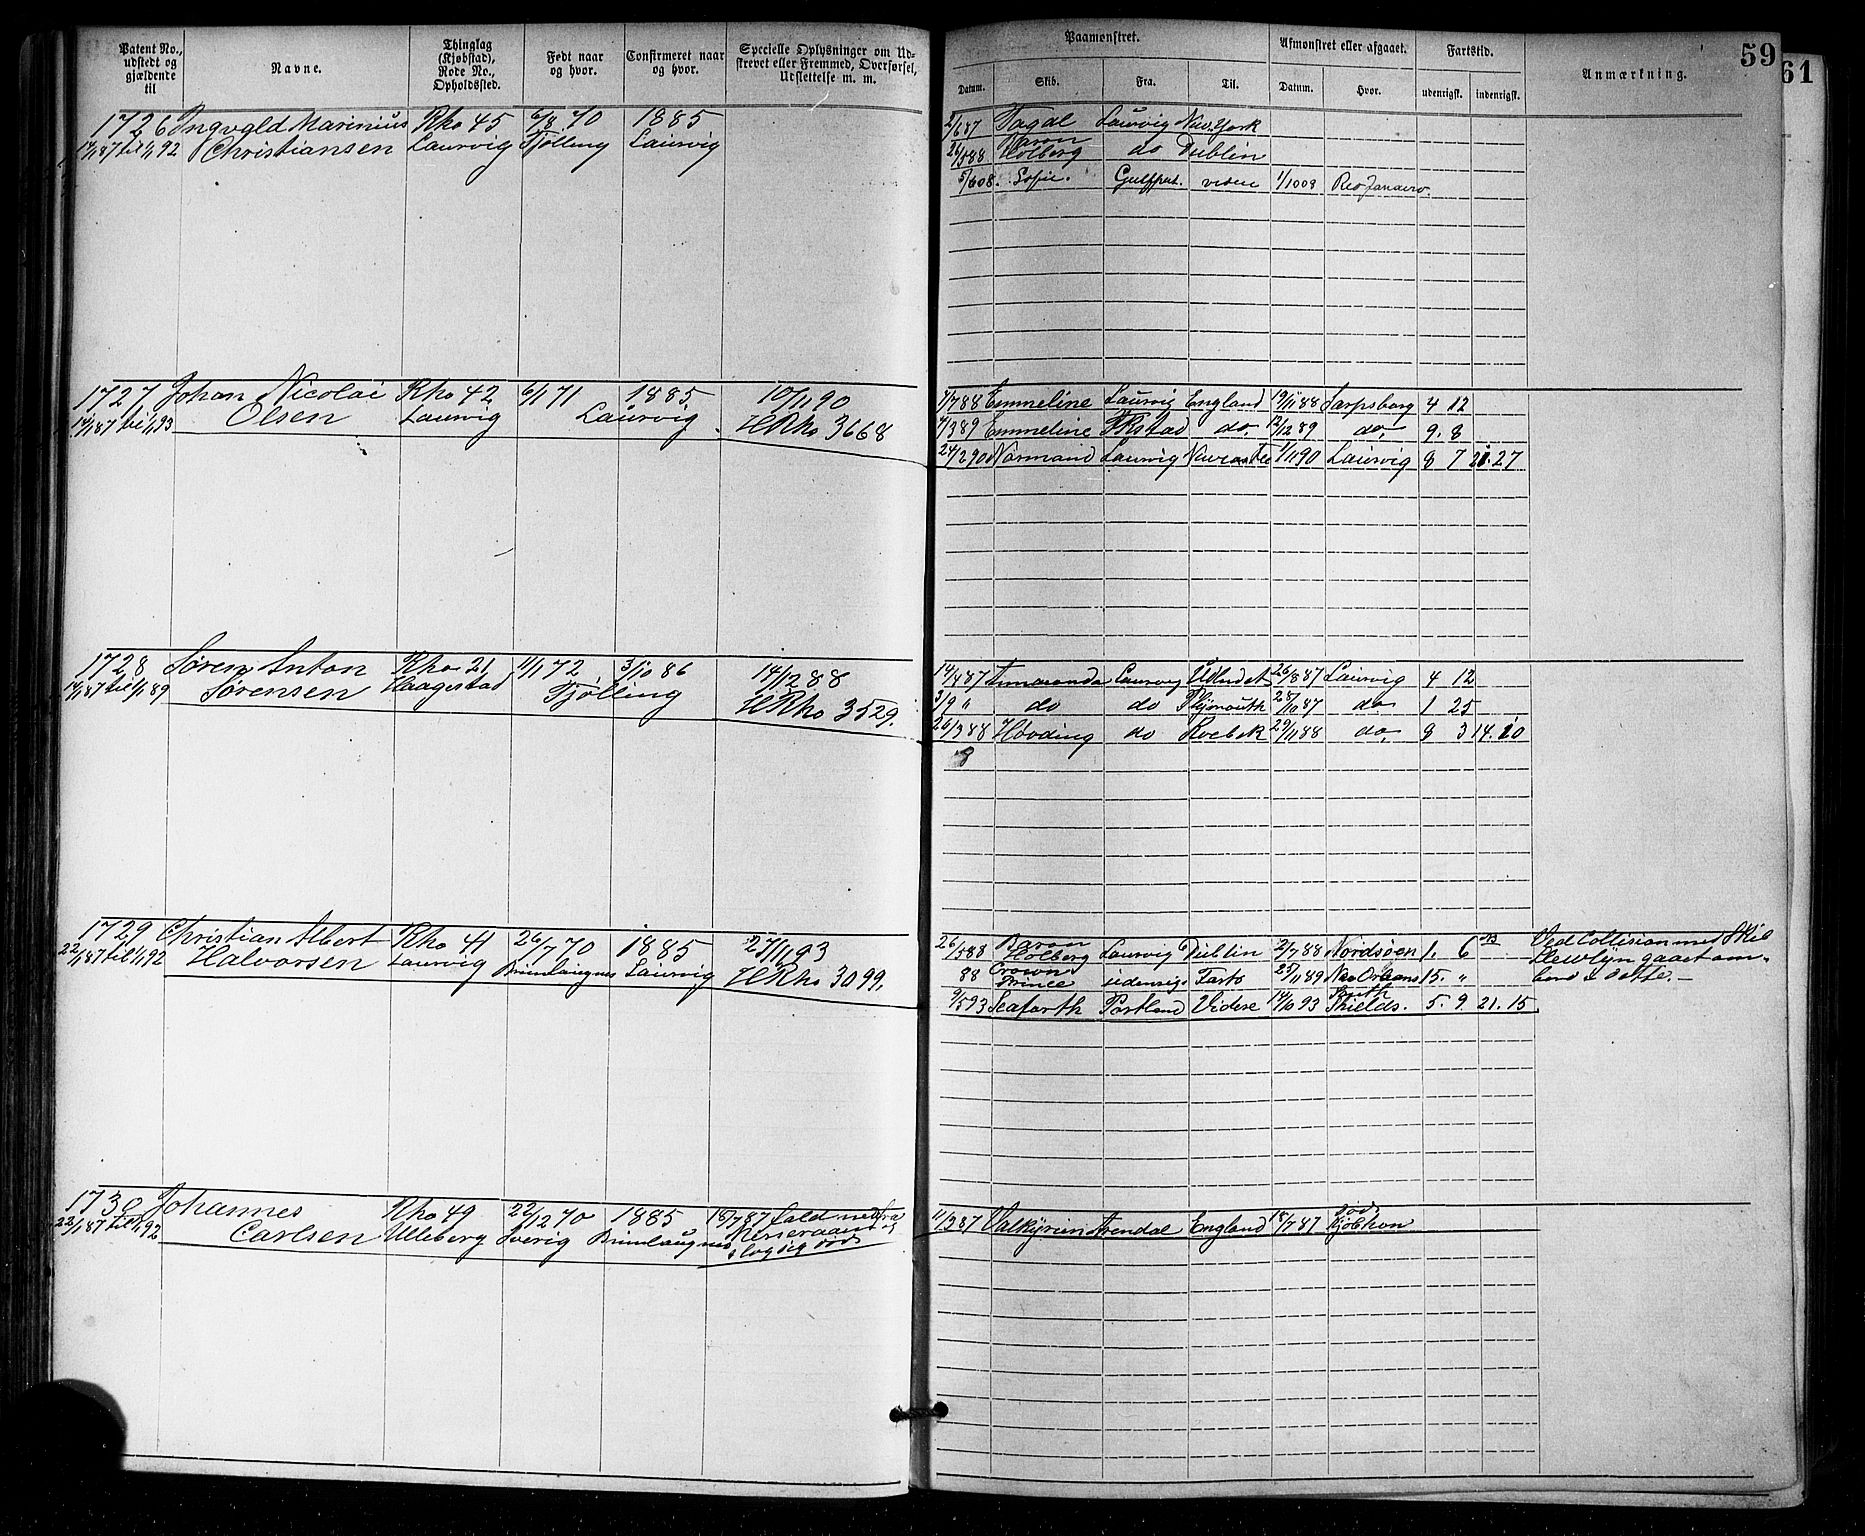 Patent No., udstedt og gjældende til
Navne.
Thinglag (Kjøbstad), Rode No., Opholdssted.
Født naar og hvor.
Confirmeret naar og hvor.
Specielle Oplysninger om Udskrevet eller Fremmed, Overførsel, Udslettelse m. m.
1726 Ingvald Marinius Rho 45 6/8 70 1885
til 1/1 92 Christiansen Laurvig Tjølling Laurvig
1727 Johan Nicolai Rho 42 6/1 71 1885 10/11 90
til 1/1 93 Olsen Laurvig Laurvig HRho 3668
1728 Søren Anton Rho 21 11/1 72 3/10 86 14/12 88
til 1/1 89 Sørensen Haagestad Tjølling HRho 3529.
1729 Christian Albert Rho 41 26/7 70 1885 27/11 93
22/1 87 til 1/1 92 Halvorsen Laurvig Brunlaugnes Laurvig HRho 3099.
1730 Johannes Rho 49 22/12 70 1885 18/7 87 fald ned fra
22/1 87 til 1/1 92 Carlsen Ulleberg Sverig Brunlaugnes
slog sig død
59
61
Paamønstret.
Afmønstret eller afgaaet.
Fartstid.
Anmærkning.
Datum. Skib. Fra. Til. Datum. Hvor. udenrigsk. indenrigsk.
2/6 87 Fagal Laurvig New York
26/5 88 Baron Holberg do Dublin
5/6 08. Sofie. Gulfport. videre 1/10 08 Rio Janaero.
7/7 88 Emmeline Laurvig England 19/11 88 Sarpsborg 4 12
7/3 89 Emmeline FKstad do. 12/12 89 do. 9. 8
24/2 90 Normand Laurvig 1/11 90 Laurvig 8 7 21. 27
14/4 87 Amaranda Laurvig Udlndet 26/8 87 Laurvig 4 12
3/9 " do do Plymouth 28/10 87 do 1 25
26/3 88 Høvding do 29/11 88 do. 8 3 14. 10
26/5 88 Baron Holberg Laurvig Dublin 2/7 88 Nordsøen 1. 6 Ved Collision med Skib
88 Crown Prince udenrigs Fart 25/11 89 New Orleans 15. " Llewlyn gaaet om-
bord i dette.
9/5 93 Seaforth Portland Videre 14/10 93 South Shields. 5. 9. 21. 15.
11/3 87 Valkyrien Arendal England 18/7 87 død Kjøbhvn